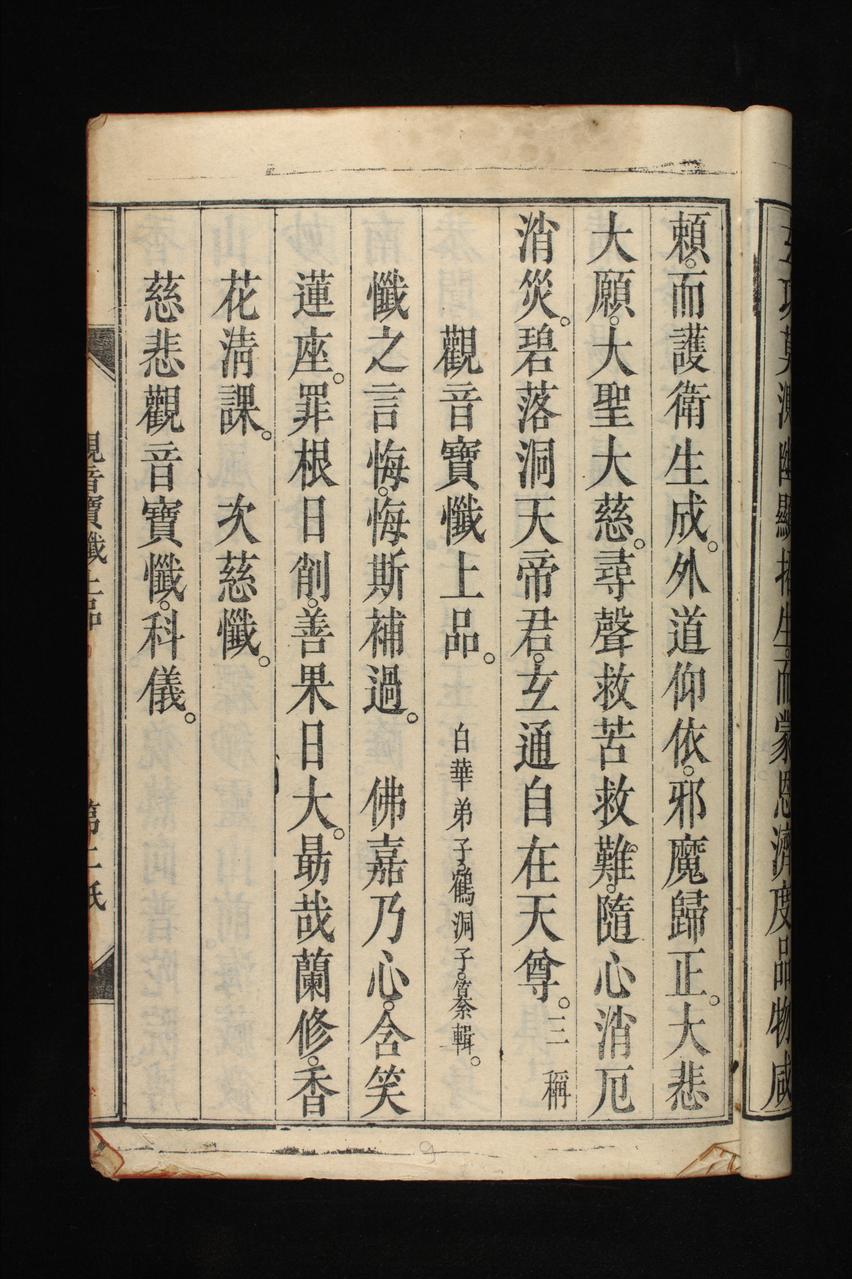 玄功莫測幽顯揔生。而蒙恩濟度品物咸
頼。而護衛生成。外道仰依。邪魔歸正。大悲
大願。大聖大慈。尋聲救苦救難。隨心消厄
消災。碧落洞天帝君。玄通自在天尊。三稱
觀音寶懺上品。白華弟子。鶴洞子。纂輯。
懺之言悔。悔斯補過。佛嘉乃心。含笑
蓮座。罪根日削。善果日大。勗哉蘭修。香
花淸課。次慈懺。
慈悲觀音寶懺。科儀。
觀音寶懺上品 第二祇